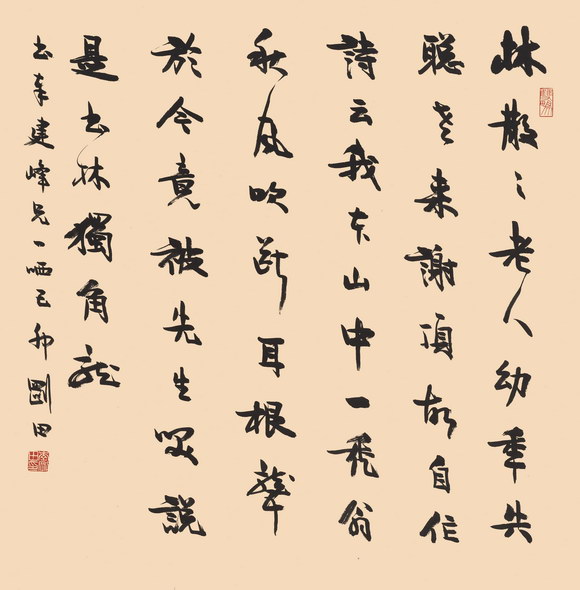 林散之老人幼年失
聪老来谢顶故自作
詩云我本山中一秃翁
秋风吹断耳根聋
於今竟被先生笑說
是书林獨角龙
书奉建峰兄一哂己卯劉田